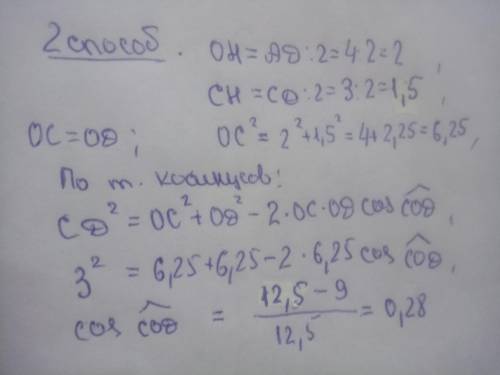 2 способ. OH = AD : 2 = 4 : 2 = 2,
CH = CD : 2 = 3 : 2 = 1,5,
OC = OD; OC² = 2² + 1,5² = 4 + 2,25 = 6,25,
По т. косинусов:
CD² = OC² + OD² − 2·OC·OD cos COD,
3² = 6,25 + 6,25 − 2·6,25 cos COD,
cos COD = (12,5 − 9)/12,5 = 0,28